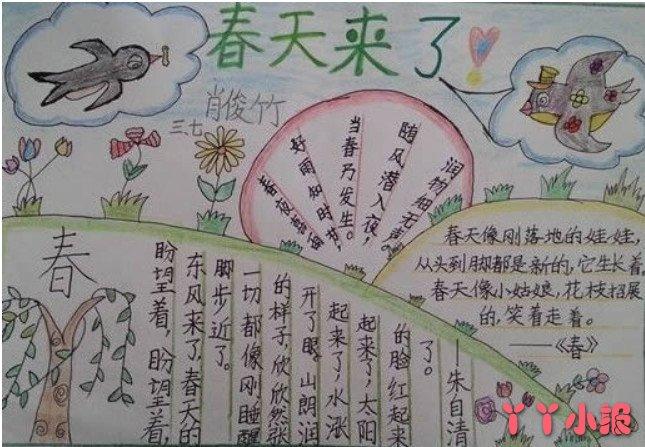 春天来了!
三七 肖俊竹
春夜喜雨
好雨知时节,
当春乃发生。
随风潜入夜,
润物细无声。
春
盼望着，盼望着，
东风来了，春天的
脚步近了。
一切都像刚睡醒
的样子，欣欣然张
开了眼。山朗润
起来了，水涨
起来了，太阳
的脸红起来
了。
——朱自清
春天像刚落地的娃娃,
从头到脚都是新的,它生长着。
春天像小姑娘,花枝招展
的,笑着走着。
——《春》
丫丫小报